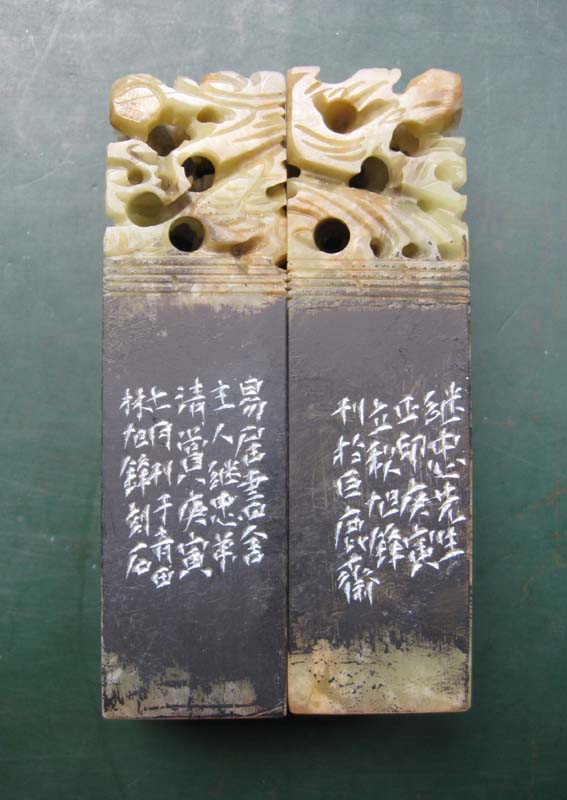 继忠先生
正印庚寅
立秋旭鋒
刊於巨鹿齋
易居書舍
主人继忠弟
清賞庚寅
七月刊于青田
林旭鋒刻石